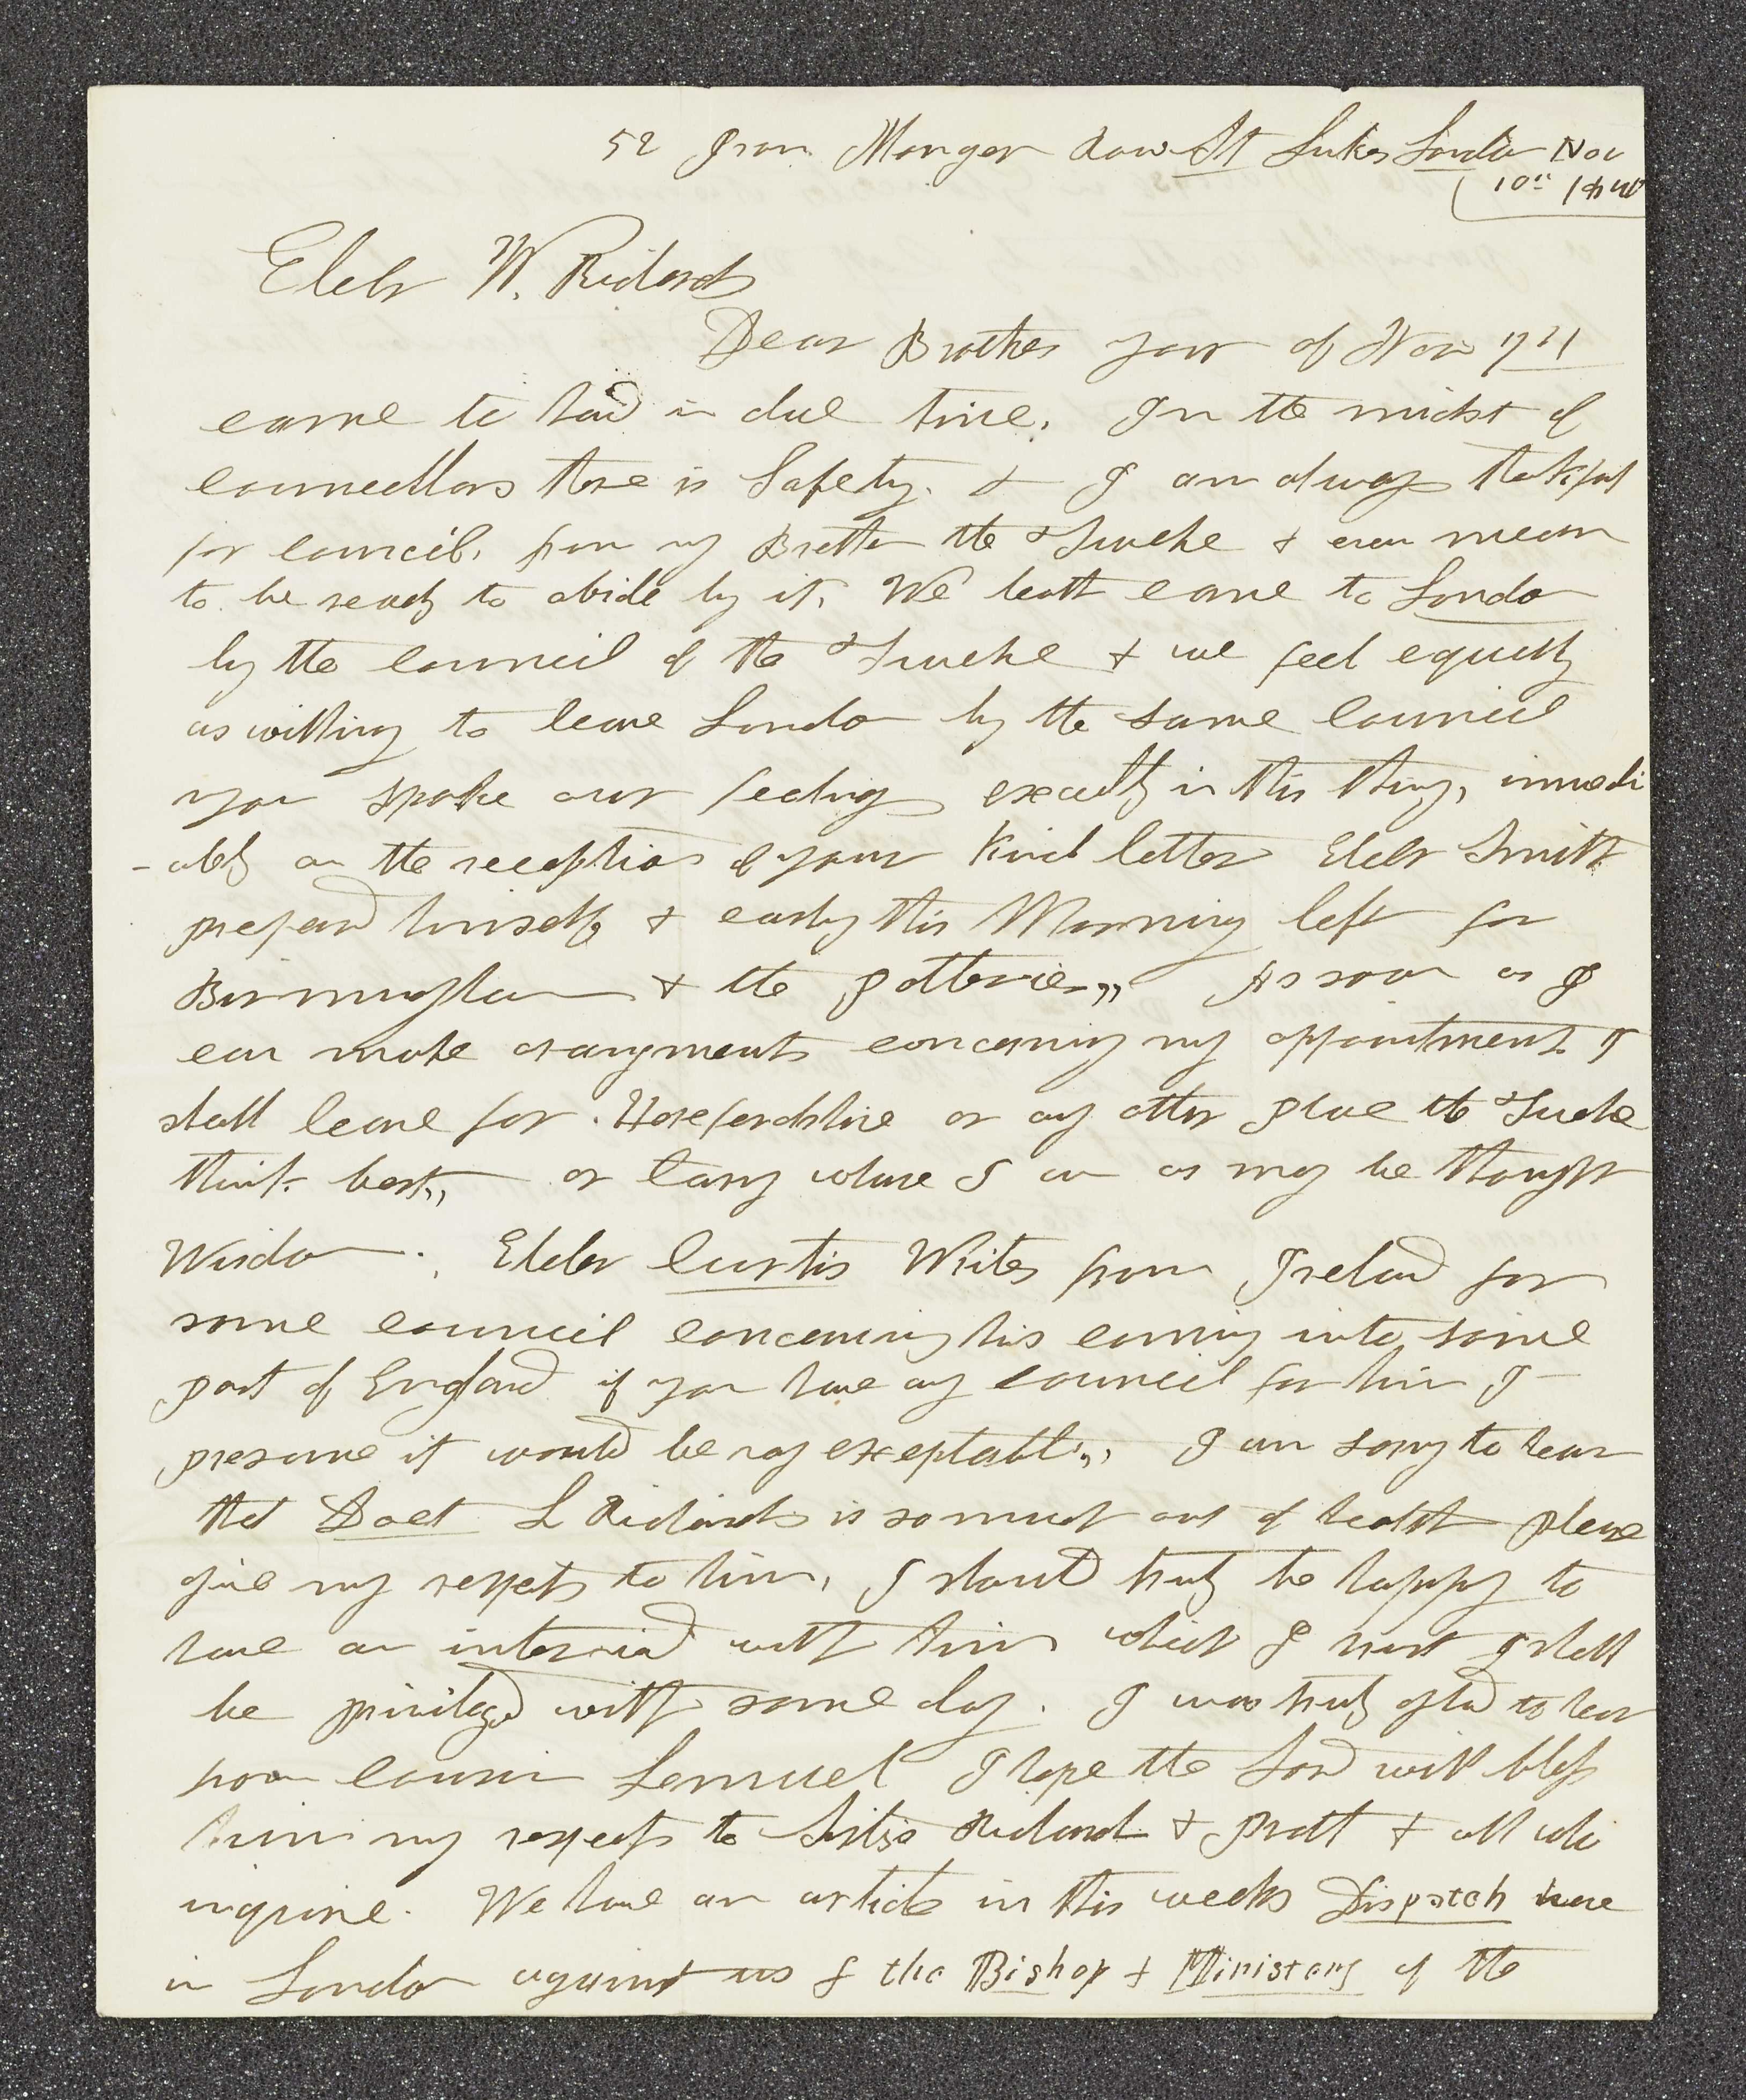 52 Iron Monger Row St Lukes London Nov
10th 1840
Elder W. Richards
Dear Brother your of Nov 7th
came to hand in due time. In the midst of
councellors there is Safety. & I am always thankful
for council. from my Brethren the Twelve & ever mean
to be ready to abide by it. We both came to London
by the council of the Twelve & we feel equally
as willing to leave London by the same council
you spoke our feelings exactly in this thing, immedi
-ately on the reception of your kind letter Elder Smith
prepared himself & early this Morning left for
Birmingham & the potteries,, As soon as I
can make arangments concerning my appointments I
shall leave for Herefordshire or any other place the Twelve
think best,, or tarry whare I am as may be thought
Wisdom. Elder Curtis Writes from Ireland for
some council concerning his coming into some
part of England if you have any council for him I
presume it would be very exceptable,, I am sorry to hear
that Doct L Richards is so much out of health please
give my respets to him, I should truly be happy to
have an interview with him which I trust I shall
be privileged with some day. I was truly glad to hear
from cousin Samuel I hope the Lord will bless
him my respects to Sisters Richards & Pratt & all who
inquire. We have an article in this weeks Dispatch here
in London against us & the Bishop & Ministers of the